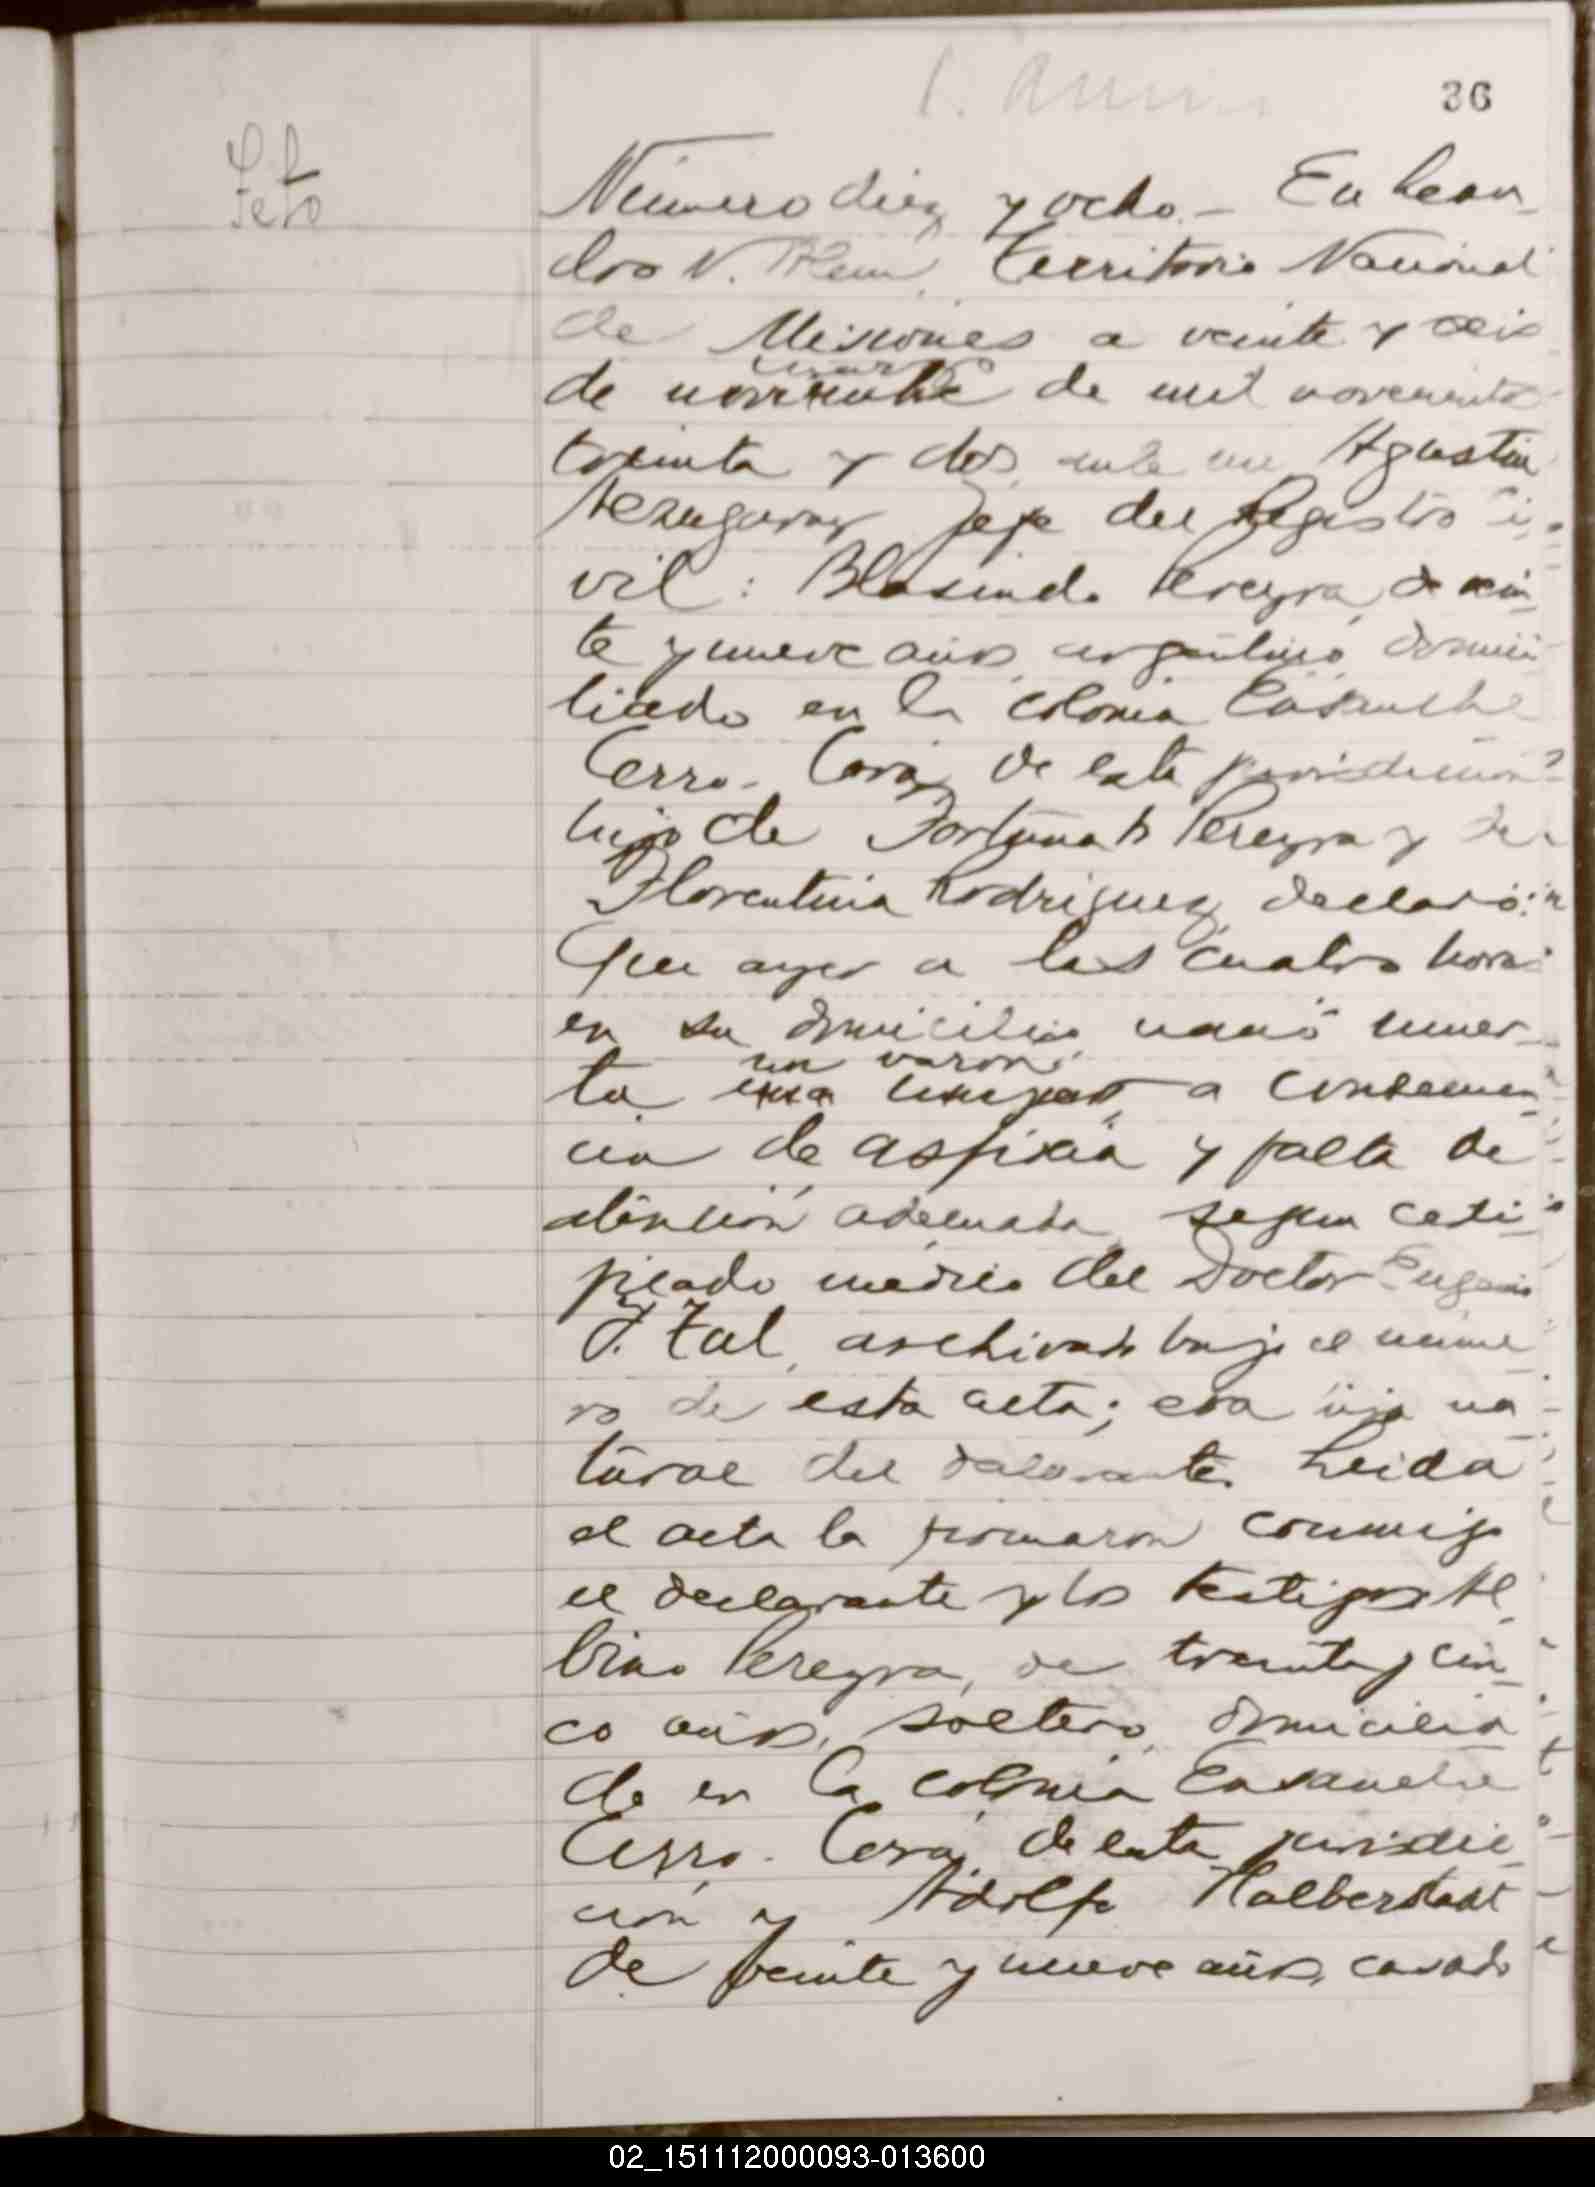 36
Feto
Número diez y ocho.- En Lean-
dro N. Alem, Territorio Nacional
de Misiones a veinte y seis
marzo
de noviembre de mil novecientos
treinta y dos, ante mi Agustin
Jefe del Registro Ci-
vil: Blasindo Pereyra, de vein-
te y nueve años, argentino, domici-
liado en la colonia Ensanche
Cerro-Corá, de esta jurisdicción
hijo de Fortunato Pereyra y de
Florentina Rodriguez, declaró:
Que ayer a las cuatro horas
en su domicilio nació muer-
un varon,
ta una mujer, a consecuen-
cia de asfixia y falta de
atención adecuada, segun certi-
ficado médico del Doctor Eugenio
F. Zal, archivado bajo el núme-
ro de esta acta; era hijo na-
tural del declarante. Leida
el acta la firmaron conmigo
el declarante y los testigos Al-
bino Pereyra, de treinta y cin-
co años, soltero, domicilia-
do en la colonia Ensanche
Cerro-Corá, de esta jurisdic-
ción y Adolfo Halberstadt
de veinte y nueve años, casado
02_151112000093-013600